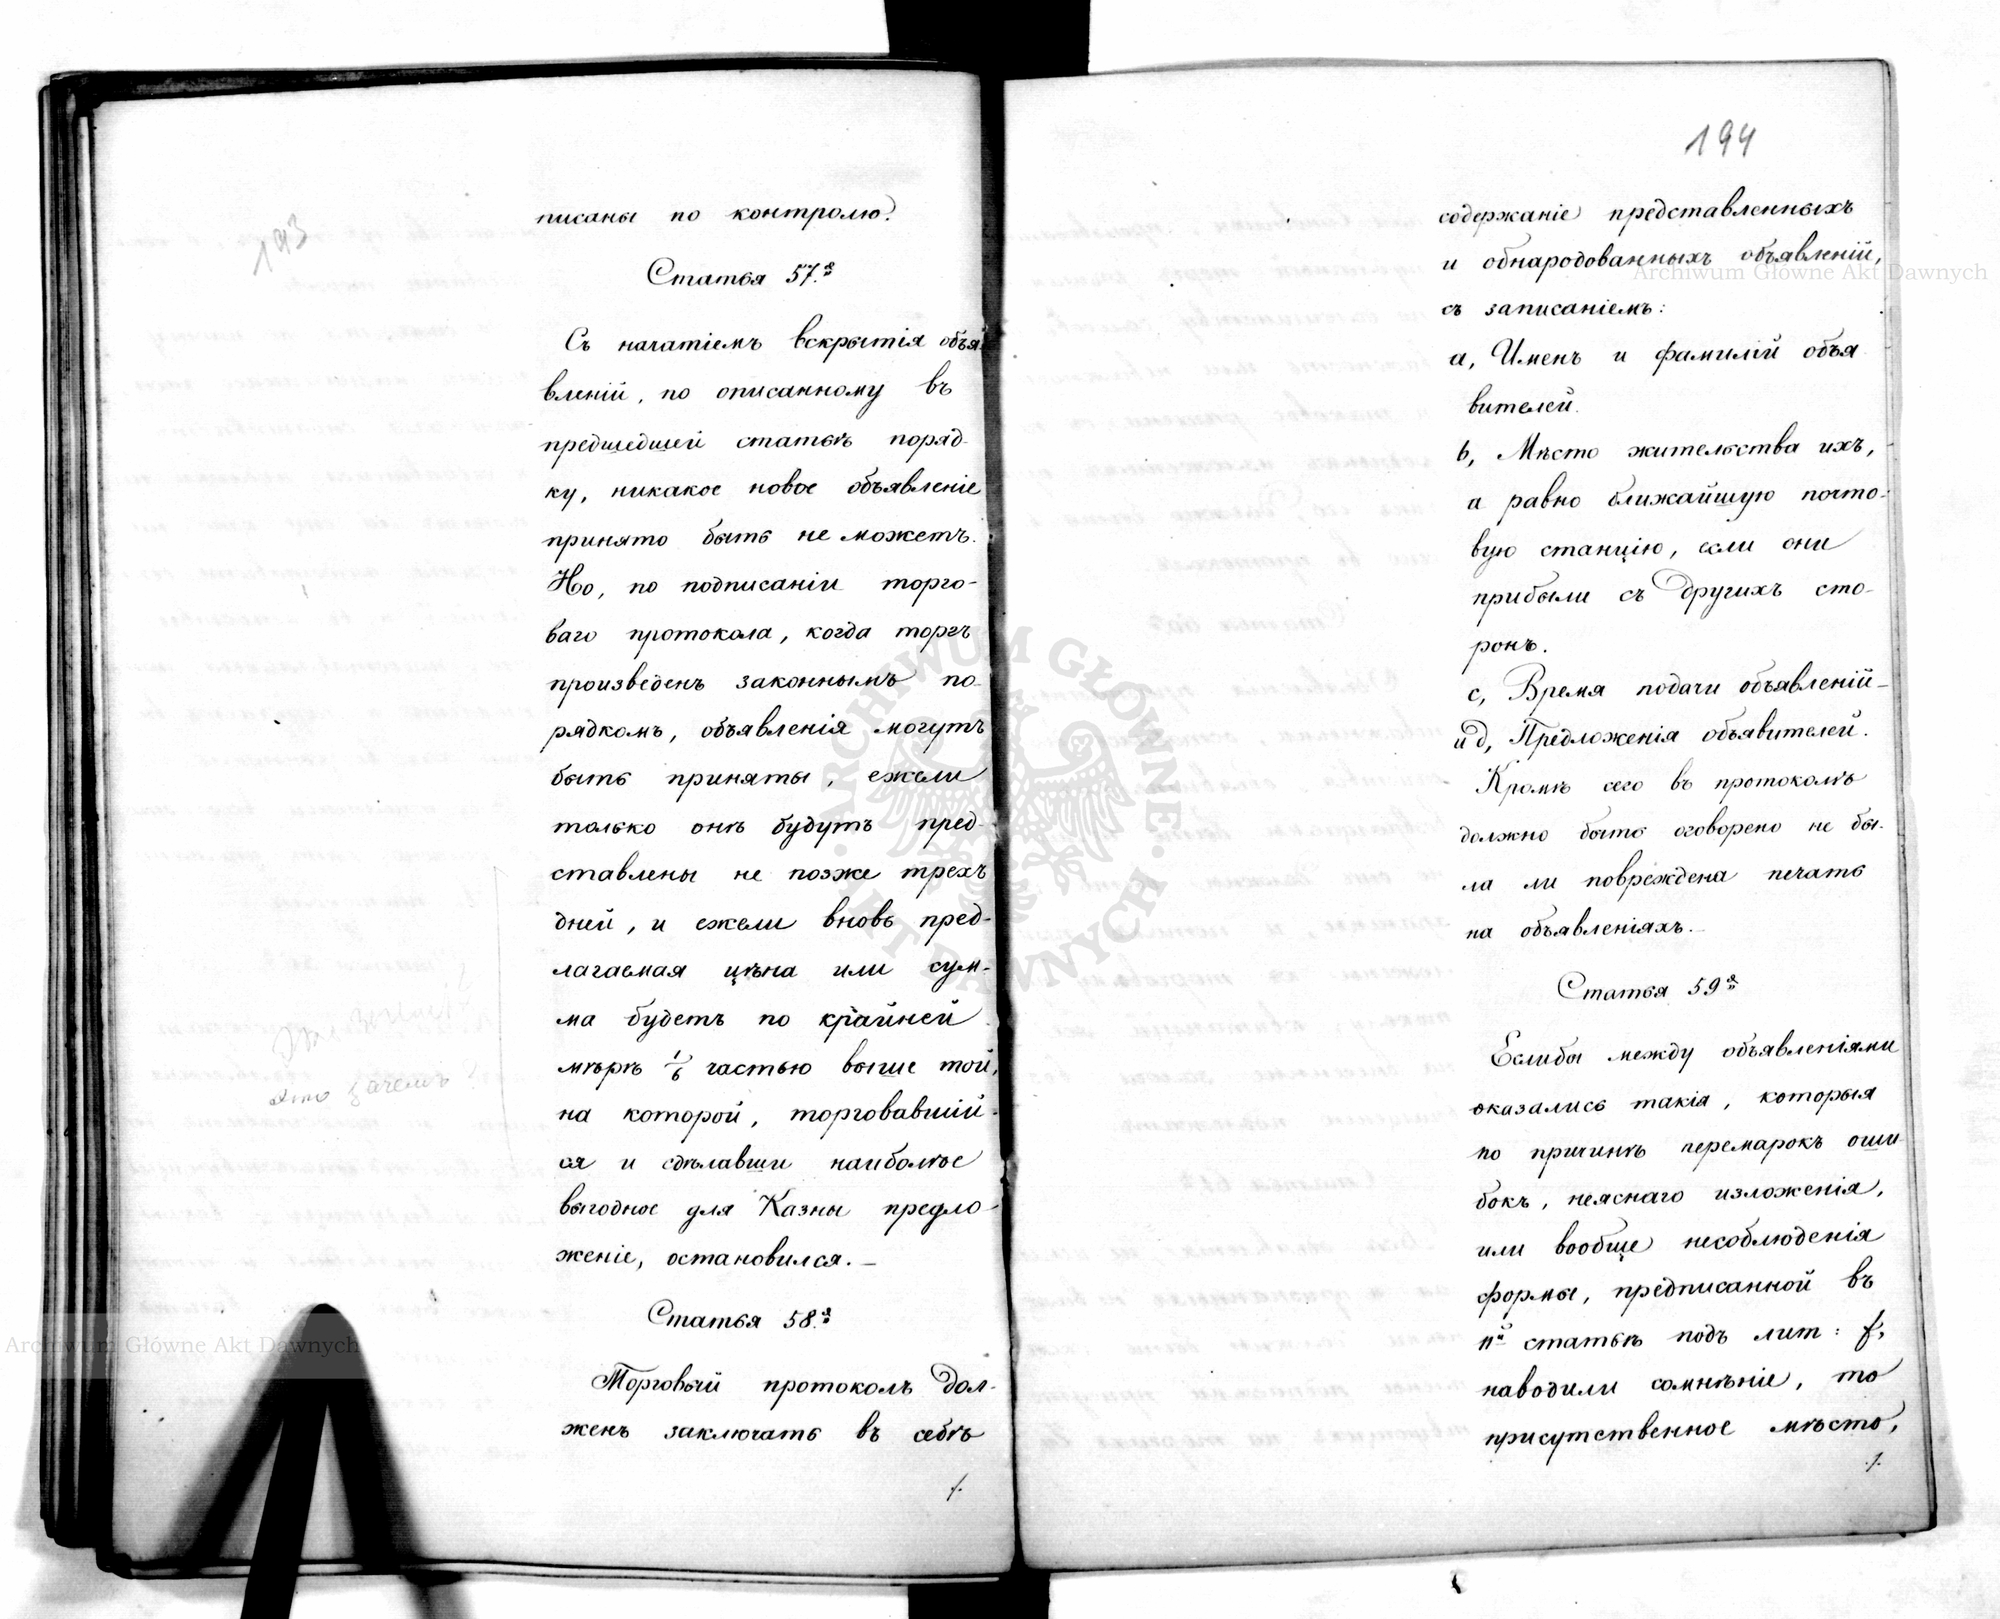 193
писаны по контролю.
Статья 57.я
Съ начатіемъ вскрытія объя
вленій, по описанному въ
предшедшей статьѣ поряд-
ку, никакое новое объявленіе
принято быть не можетъ.
Но, по подписаніи торго-
ваго протокола, когда торгъ
произведенъ законнымъ по-
рядкомъ, объявленія могутъ
быть приняты, ежели
только онѣ будутъ пред-
ставлены не позже трехъ
дней, и ежели вновь пред-
лагаемая цѣна или сум-
ма будетъ по крайней
мѣрѣ 1/6 частью выше той,
на которой, торговавшій-
ся и сдѣлавши наиболѣе
выгодное для Казны предло-
женіе, остановился. —
это зачемъ?
Статья 58.я
Торговый протоколъ дол-
женъ заключать въ себѣ
./.
194
содержаніе представленныхъ
и обнародованныхъ объявленій,
съ записаніемъ:
a, Именъ и фамилій объя
вителей.
b, Мѣсто жительства ихъ,
а равно ближайшую почто-
вую станцію, если они
прибыли съ другихъ сто-
ронъ.
c, Время подачи объявленій—
и d, Предложенія объявителей.
Кромѣ сего въ протоколѣ
должно быть оговорено не бы-
ла ли повреждена печать
на объявленіяхъ.—
Статья 59я
Еслибы между объявленіями
оказались такія, которыя
по причинѣ перемарокъ оши
бокъ, неяснаго изложенія,
или вообще несоблюденія
формы, предписанной въ
статьѣ подъ лит: f,
наводили сомнѣніе, то
присутственное мѣсто,
./.
Archiwum Główne Akt Dawnych
Archiwum Główne Akt Dawnych
ARCHIWUM GŁÓWNE · AKT DAWNYCH ·